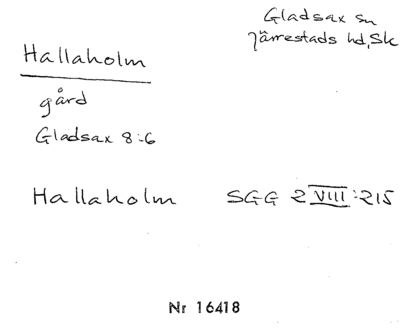 Hallaholm
Gladsax sn
Järrestads hd, Sk
gård
Gladsax 8:6
Hallaholm SGG 2 VIII:215
Nr 16418